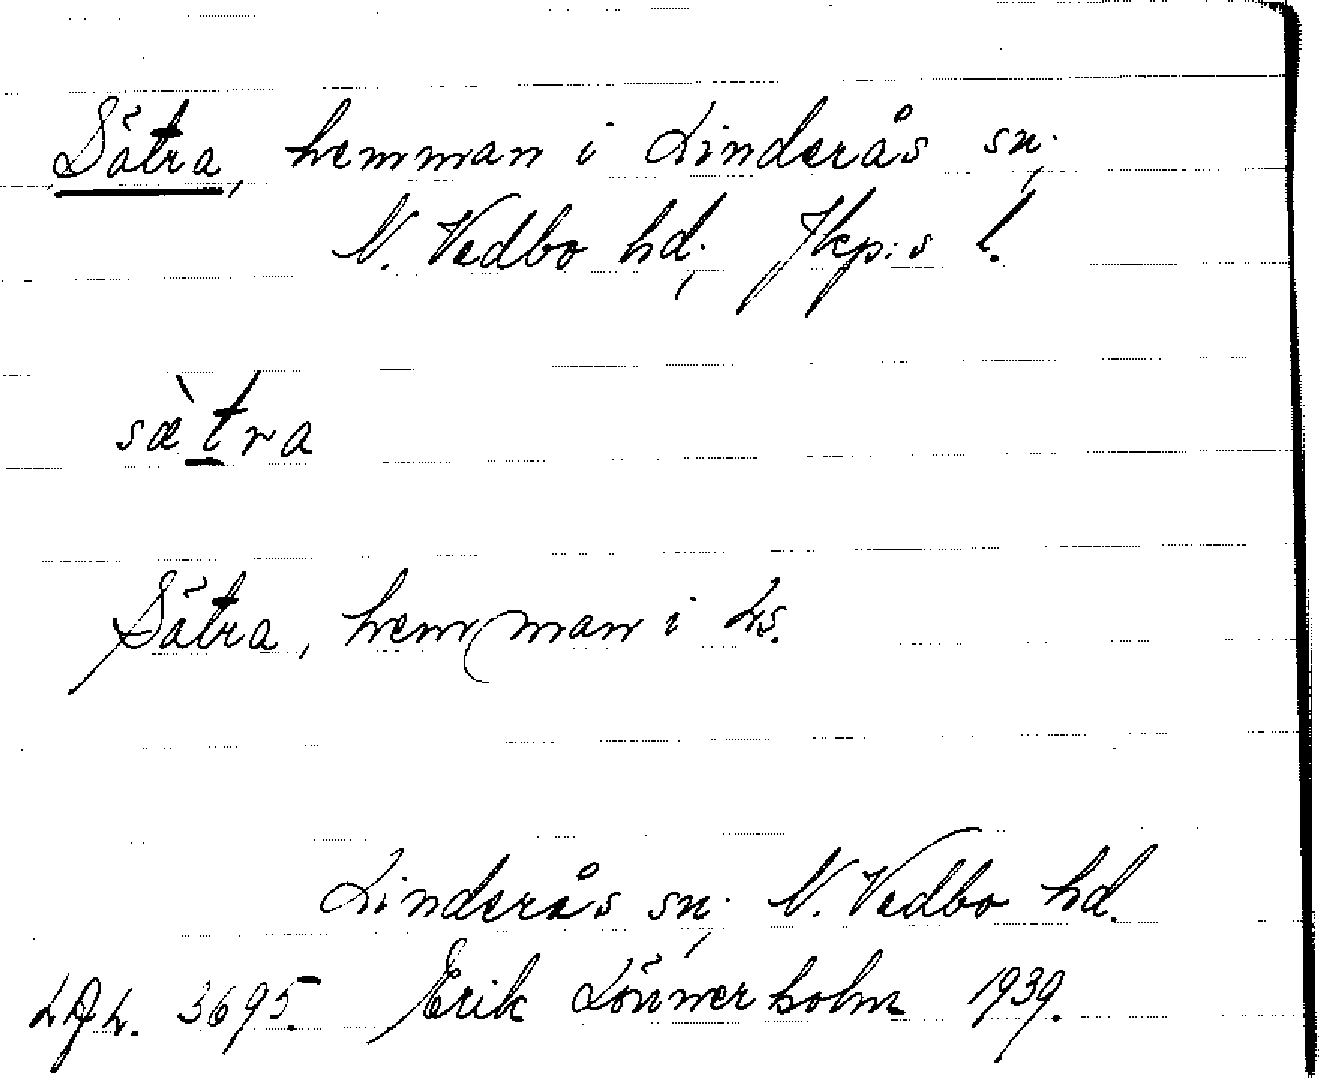 Sätra, hemman i Linderås sn.,
N. Vedbo hd., Jkp:s l.
sæ̀tra
Sätra, hemman i Ls.
Linderås sn., N. Vedbo hd.
LAL. 3695. Erik Lönnerholm 1939.